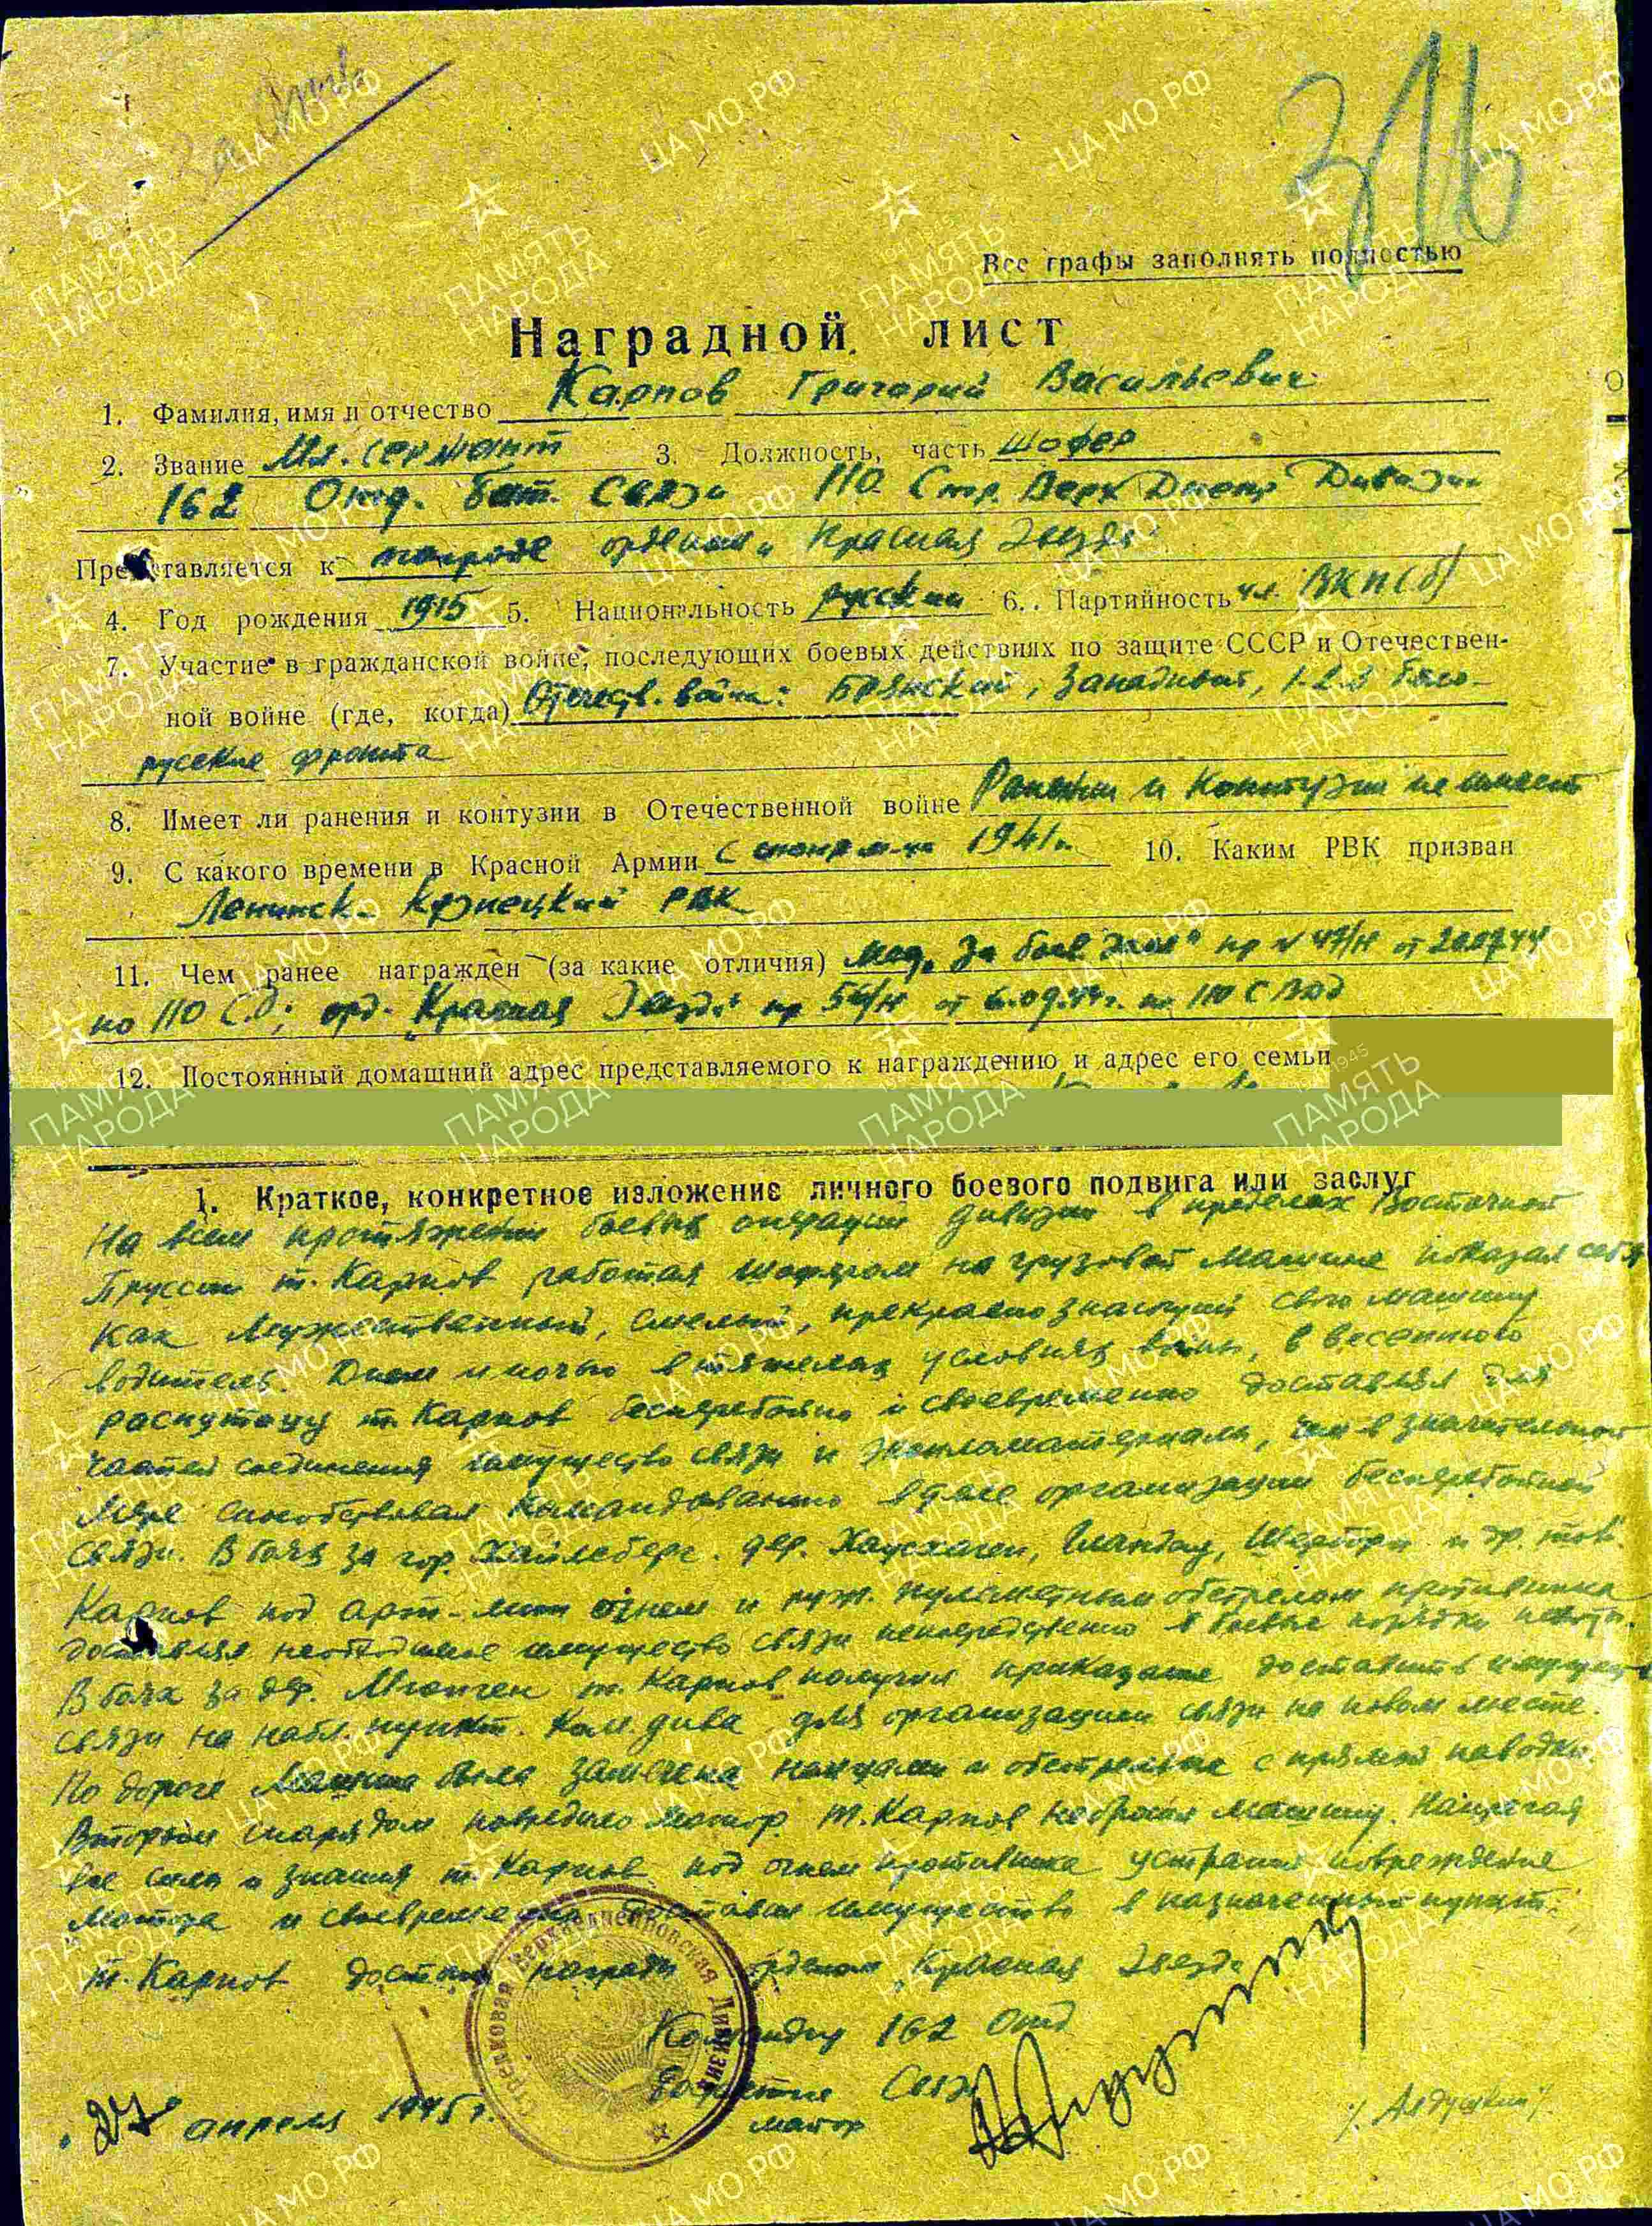 316
Все графы заполнять полностью
Наградной лист
1. Фамилия, имя и отчество Карпов Григорий Васильевич
2. Звание Мл. сержант 3. Должность, часть шофер
162 Отд. бат. Связи 110 Стр. Верх Днепр Дивизии
Представляется к награде орденом „Красная Звезда"
4. Год рождения 1915 5. Национальность русский 6. Партийность чл. ВКП(б)
7. Участие в гражданской войне, последующих боевых действиях по защите СССР и Отечествен-
ной войне (где, когда) Отечеств. война: Брянский, Западный, 1-2-3 Бело-
русские фронта
8. Имеет ли ранения и контузии в Отечественной войне Ранений и Контузий не имеет
9. С какого времени в Красной Армии с 1941 г. 10. Каким РВК призван
Ленинск-Кузнецкий РВК
11. Чем ранее награжден (за какие отличия) мед. „За боев. заслуги" пр № 47/н от 20.07.44
по 110 С.Д; орд. „Красная Звезда" пр 54/н от 6.09.44г. по 110 СВДД
12. Постоянный домашний адрес представляемого к награждению и адрес его семьи
1. Краткое, конкретное изложение личного боевого подвига или заслуг
На всем протяжении боевых операций дивизии в пределах Восточной
Пруссии т. Карпов работая шофером на грузовой машине показал себя
как мужественный, смелый, прекрасно знающий свою машину
водитель. Днем и ночью в тяжелых условиях войны, в весеннюю
распутицу т. Карпов бесперебойно и своевременно доставлял для
частей соединения имущество связи и экспломатериалы, чем в значительной
мере способствовал командованию в деле организации бесперебойной
связи. В боях за гор. Хайльсберг. дер. Хаусхаген, Гландау, и др. тов.
Карпов под арт-мин огнем и руж. пулеметным обстрелом противника
доставлял необходимое имущество связи непосредственно в боевые порядки пехоты.
В боях за дер. Мюнген т. Карпов получил приказание доставить имущество
связи на набл. пункт. Ком. дива для организации связи на новом месте.
По дороге машина была замечена немцами и обстреляна с прямой наводки.
Вторым снарядом повредило мотор. т. Карпов не бросил машину. Напрягая
все силы и знания т. Карпов под огнем противника устранил повреждение
мотора и своевременно доставил имущество в назначенный пункт.
т. Карпов достоин награды орденом „Красная Звезда
Командир 162 Отд
Батальона Связи
майор
/Алдушкин/
„27" апреля 1945 г.
Стрелковая Верхнеднепровская Дивизия
ПАМЯТЬ НАРОДА
ЦА МО РФ